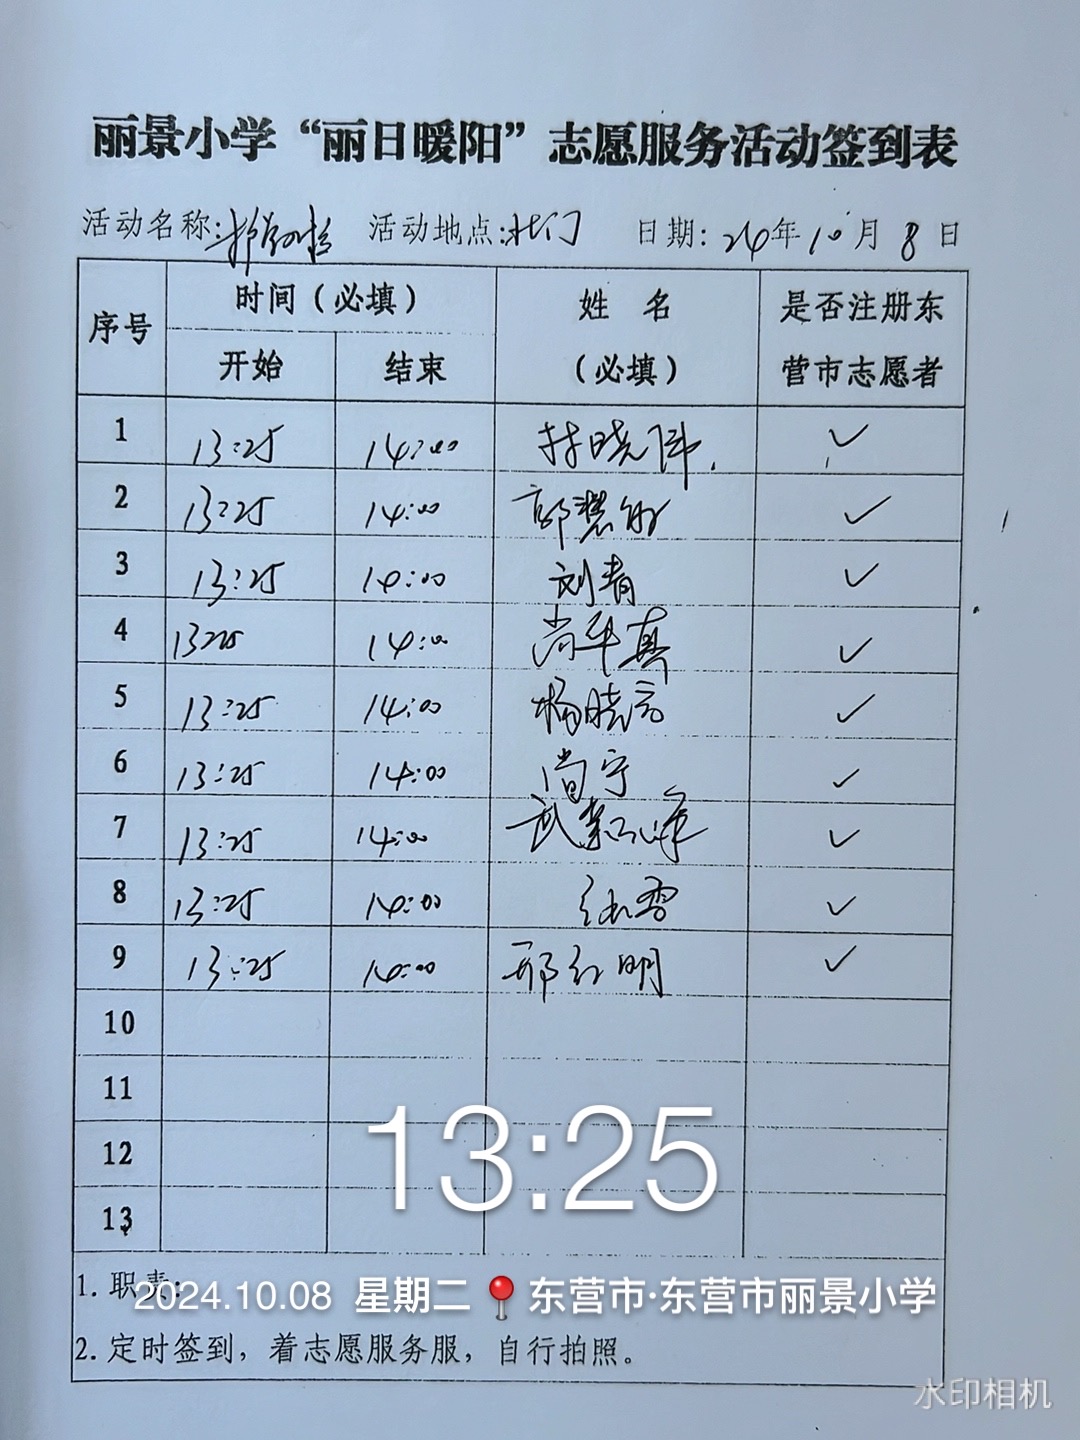 丽景小学“丽日暖阳”志愿服务活动签到表
活动名称: 活动地点:北门 日期: 24年10月8日
序号 时间（必填） 姓 名（必填） 是否注册东营市志愿者
开始 结束
1 13:25 14:00 林晓伟 ✓
2 13:25 14:00 郭慧敏 ✓
3 13:25 14:00 刘青 ✓
4 1325 14:00 尚华真 ✓
5 13:25 14:00 杨晓 ✓
6 13:25 14:00 尚宁 ✓
7 13:25 14:00 武 ✓
8 13:25 14:00 ✓
9 13:25 14:00 邢红明 ✓
10
11
12
13
13:25
1. 职责:
2024.10.08 星期二 📍东营市·东营市丽景小学
2. 定时签到，着志愿服务服，自行拍照。
水印相机